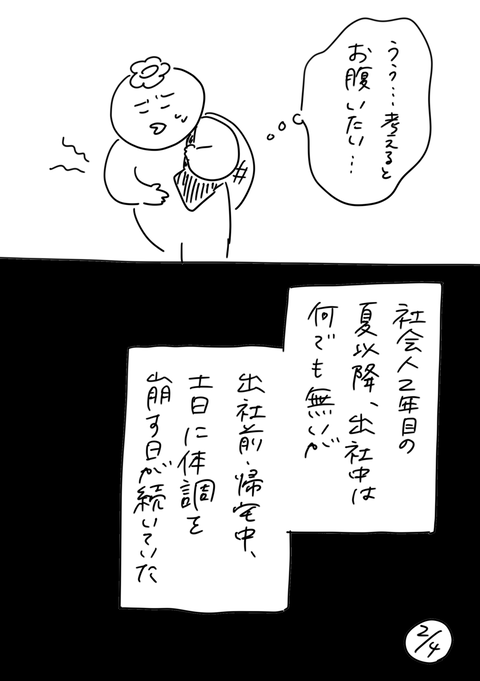 うぅ…考えると
お腹いたい…
社会人2年目の
夏以降、出社中は
何でも無いが
出社前・帰宅中、
土日に体調を
崩す日が続いていた
2/4